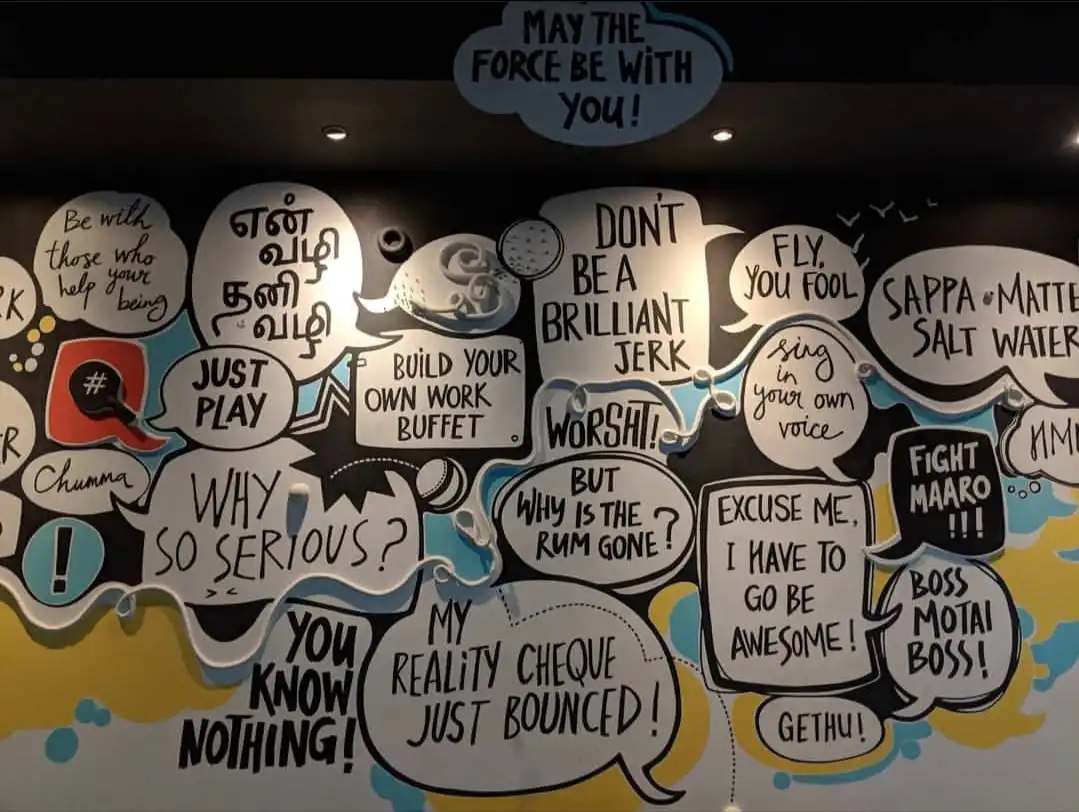 MAY THE
FORCE BE WITH
YOU!
Be with
those who
help your
being
என்
வழி
தனி
வழி
DON'T
BE A
BRILLIANT
JERK
FLY,
YOU FOOL
SAPPA MATTE
SALT WATER
RK
#
JUST
PLAY
BUILD YOUR
OWN WORK
BUFFET
WORSHT!
sing
in
your own
voice
HM
R
Chumma
!
WHY
SO SERIOUS?
BUT
WHY IS THE
RUM GONE?
EXCUSE ME,
I HAVE TO
GO BE
AWESOME!
FIGHT
MAARO
!!!
BOSS
MOTAI
BOSS!
YOU
KNOW
NOTHING!
MY
REALITY CHEQUE
JUST BOUNCED!
GETHU!